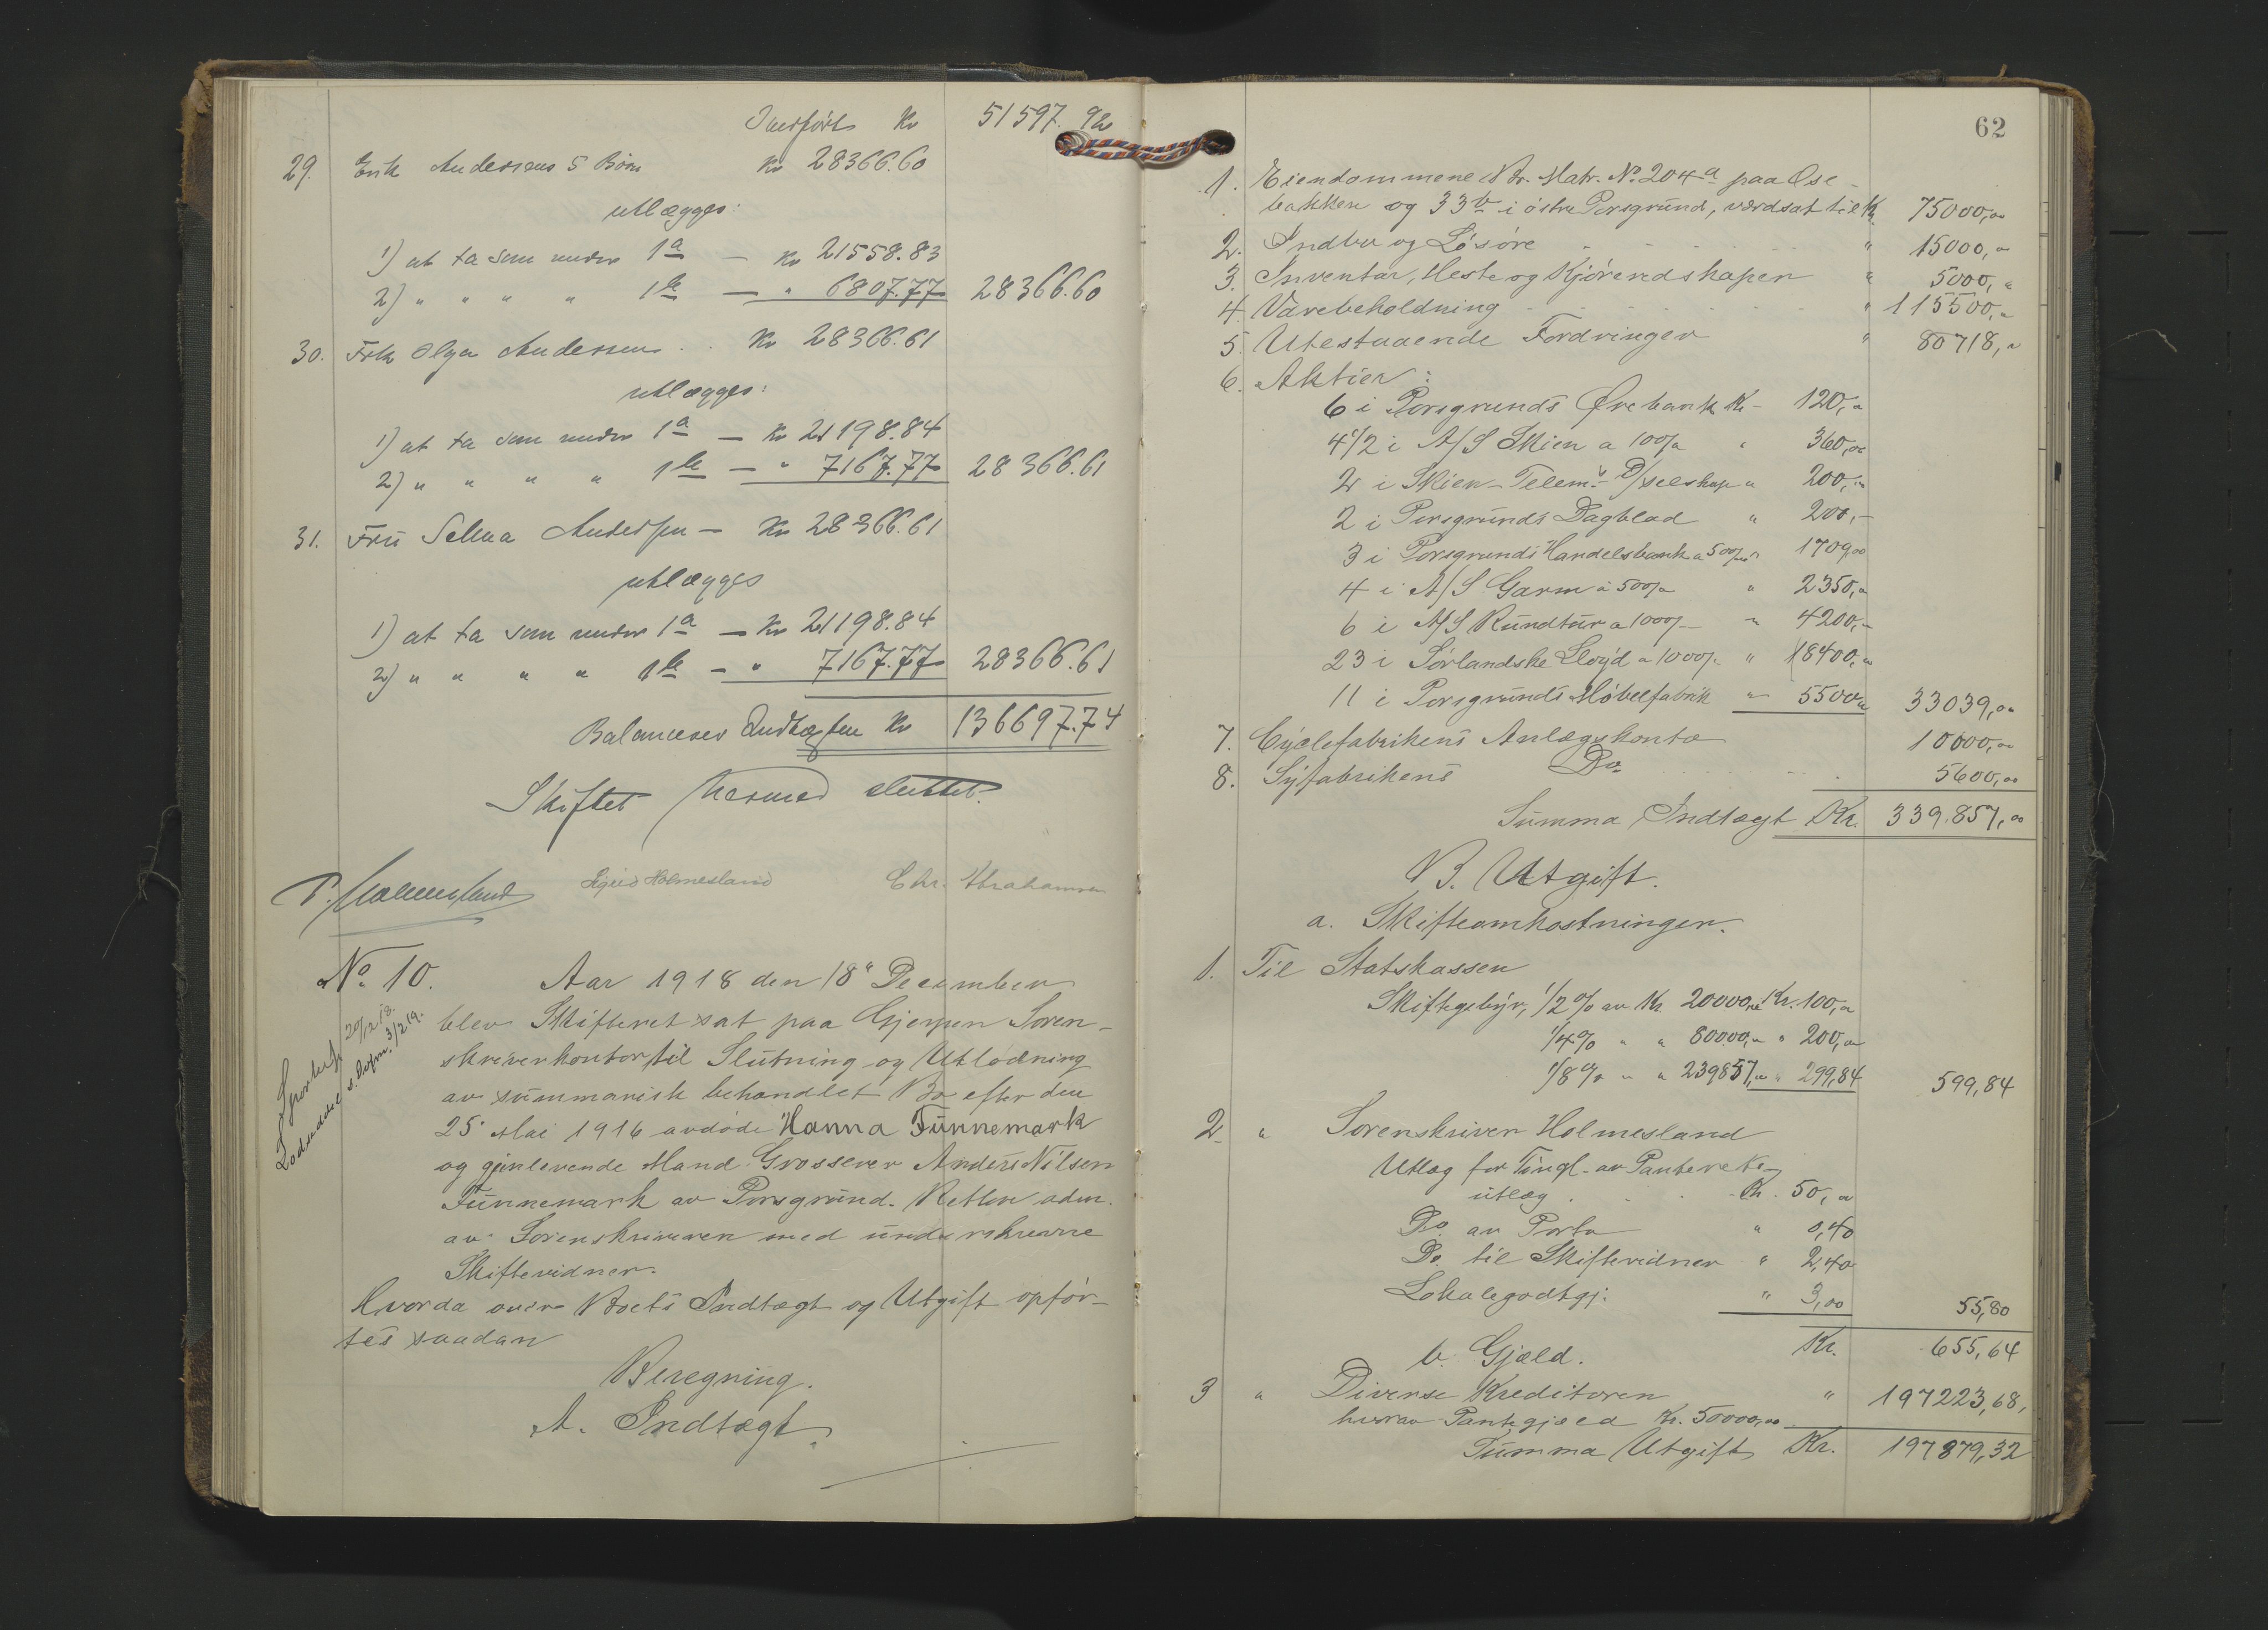 Overført Kr 51597.92
29. Erik Anderssens 5 Børn Kr 28366.60
utlægges:
1) at ta som under 1a — Kr 21558.83
2) " " " " 1b — " 6807.77 28366.60
30. Frk Olga Anderssen . . Kr 28366.61
utlægges:
1) at ta som under 1a — Kr 21198.84
2) " " " " 1b — " 7167.77 28366.61
31. Fru Selma Anderssen — Kr 28366.61
utlægges
1) at ta som under 1a — Kr 21198.84
2) " " " " 1b — " 7167.77 28366.61
Balancerer Indtægten Kr 136697.74
Skiftet hermed sluttet.
P. Holmesland Sigrid Holmesland Chr. Abrahamsen
No 10. Aar 1918 den 18" December
blev Skifteret sat paa Gjerpen Soren-
skriverkontor til Slutning og Utlodning
av summarisk behandlet Bo efter den
25' Mai 1916 avdøde Hanna Funnemark
og gjenlevende Mand Grosserer Anders Nilsen
Funnemark av Porsgrund. Retten adm.
av Sorenskriveren med underskrevne
Skiftevidner.
20/12 18.
3/2 19.
Hvorda over Boets Indtægt og Utgift opfør-
tes saadan
Beregning.
A. Indtægt.
62
1. Eiendommene Br. Matr. No. 204a paa Øse-
bakken og 33b i østre Porsgrund, værdsat til Kr 75000,00
2. Indbu og Løsøre " 15000,"
3. Inventar, Heste og Kjøreredskaper " 5000,"
4. Varebeholdning " 115500,"
5. Utestaaende Fordringer " 80718,"
6. Aktier:
6 i Porsgrunds Ørebank Kr- 120,"
4 1/2 i A/S Skien a 100/" " 360,00
2 i Skien-Telem. D/selskap " 200,"
2 i Porsgrunds Dagblad " 200,-
3 i Porsgrunds Handelsbank a 500/" " 1709,00
4 i A/S Garm a 500/" " 2350,"
6 i A/S Rundtur a 1000/- " 4200,"
23 i Sørlandske Lloyd a 1000/" " 18400,"
11 i Porsgrunds Møbelfabrik " 5500" 33039,00
7. Cyclefabrikens Anlægskonto 10000,00
8. Syfabrikens Do. 5600,00
Summa Indtægt Kr. 339.857,00
B. Utgift.
a. Skifteomkostninger.
1. Til Statskassen
Skiftegebyr, 1/2 % av Kr 20000,00 Kr. 100,"
1/4 % " " 80000," " 200,"
1/8 % " " 239857," " 299,84 599,84
2. " Sorenskriver Holmesland
Utlæg for Tingl. av Panterets-
utlæg . . . Kr. 50,"
Do. av Porto " 0,40
Do. til Skiftevidner " 2,40
Lokalegodtgj: " 3,00 55,80
b. Gjæld. Kr. 655,64
3 " Diverse Kreditorer " 197223,68,
hvorav Pantegjæld Kr. 50000,00
Summa Utgift Kr. 197879,32